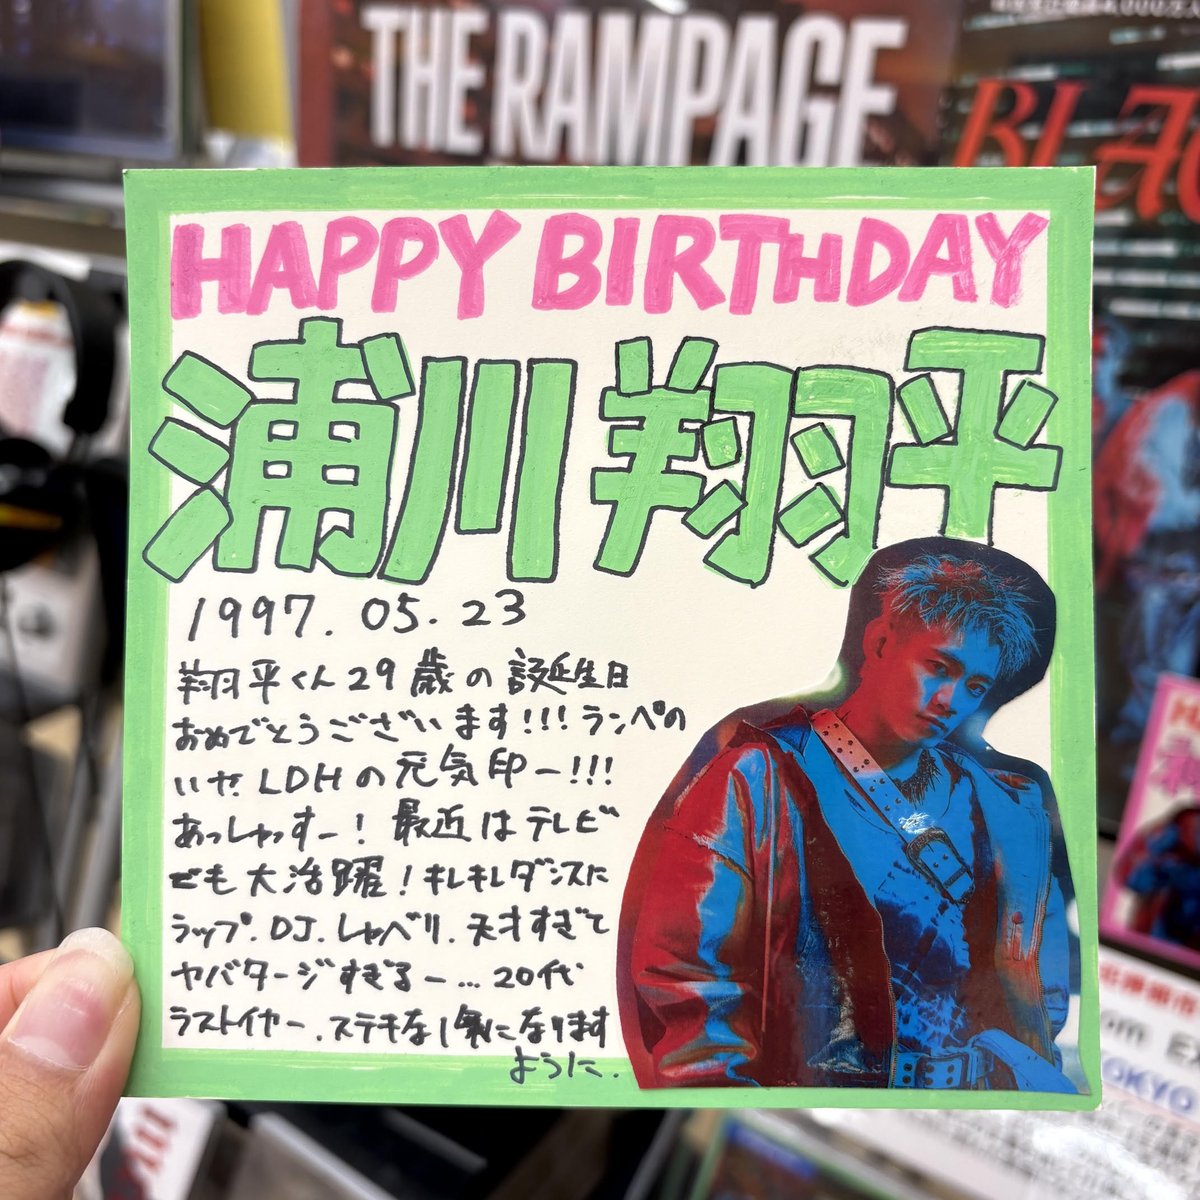 THE RAMPAGE
HAPPY BIRTHDAY
浦川翔平
1997.05.23
翔平くん29歳の誕生日
おめでとうございます!!!ランペの
いやLDHの元気印ー!!!
あっしゃっすー!最近はテレビ
でも大活躍!キレキレダンスに
ラップ.DJ.しゃべり.天才すぎて
ヤバタージすぎるー…20代
ラストイヤー.ステキな1年になります
ように.